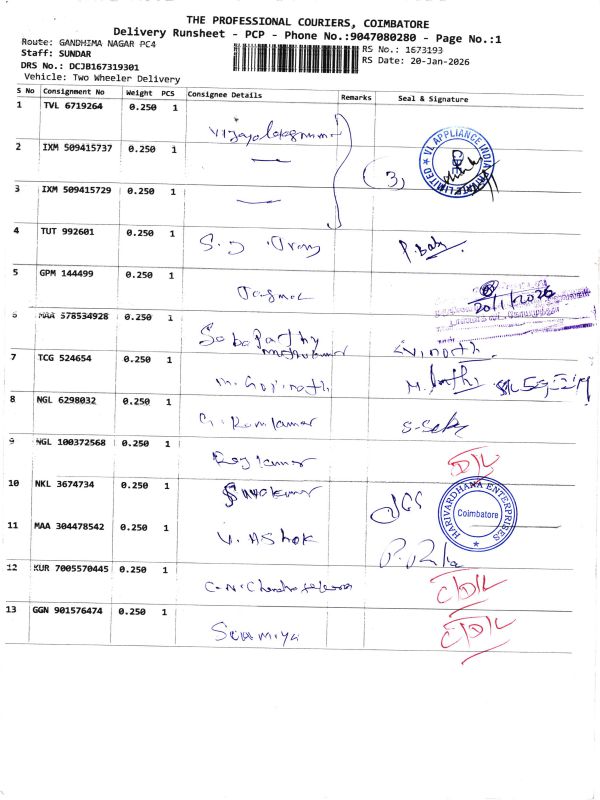 THE PROFESSIONAL COURIERS, COIMBATORE
Delivery Runsheet - PCP - Phone No.:9047080280 - Page No.:1
Route: GANDHIMA NAGAR PC4
Staff: SUNDAR
DRS No.: DCJB167319301
Vehicle: Two Wheeler Delivery
RS No.: 1673193
RS Date: 20-Jan-2026
S No Consignment No Weight PCS Consignee Details Remarks Seal & Signature
1 TVL 6719264 0.250 1
2 IXM 509415737 0.250 1
VL APPLIANCE INDIA PRIVATE LIMITED
(3)
3 IXM 509415729 0.250 1
4 TUT 992601 0.250 1 P. Baby
5 GPM 144499 0.250 1
20/1/2026
6 MAA 378534928 0.250 1 Sabapathy
Muthukumar Vinoth
7 TCG 524654 0.250 1 M. Gopinath
8 NGL 6298032 0.250 1 G. Ramkumar
9 NGL 100372568 0.250 1 Rajkumar D/L
10 NKL 3674734 0.250 1 Sivakumar
HARIVARDHANA ENTERPRISES
Coimbatore
11 MAA 304478542 0.250 1 V. Ashok
12 KUR 7005570445 0.250 1 C/D/L
13 GGN 901576474 0.250 1 Sowmiya C/D/L